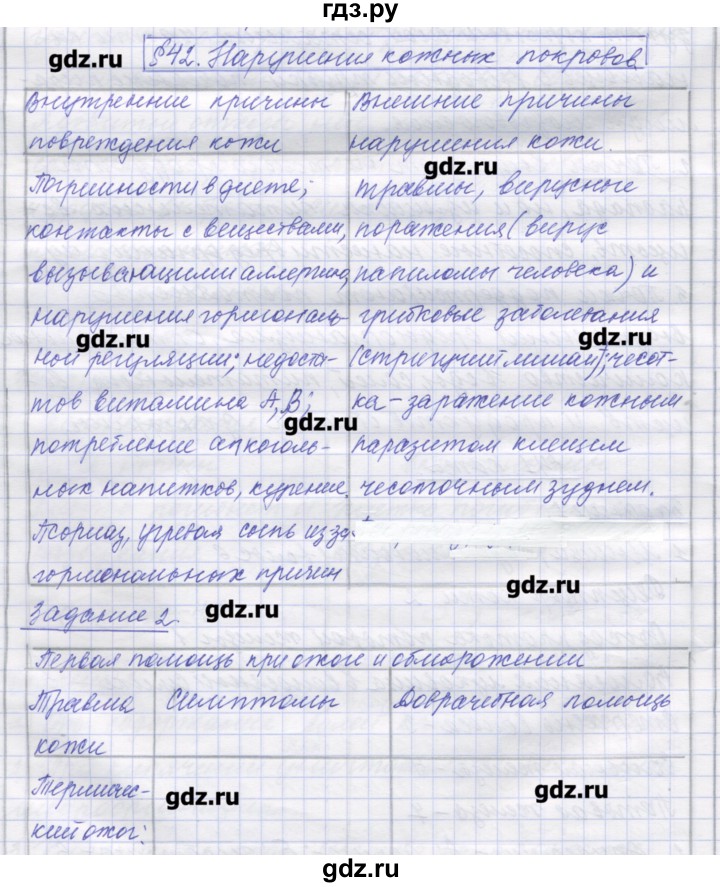 гдз.ру
§42. Нарушения кожных покровов
Внутренние причины
повреждения кожи
Погрешности в диете;
контакты с веществами,
вызывающими аллергию,
нарушения гормональ-
ной регуляции; недоста-
тов витамина А, В;
потребление алкоголь-
ных напитков, курение.
Псориаз, угревая сыпь из за
гормональных причин
Внешние причины
нарушения кожи.
травмы, вирусные
поражения (вирус
папиломы человека) и
грибковые заболевания
(стригущий лишай); чесот-
ка - заражение кожным
паразитом клещем
чесоточным зуднем.
Задание 2
Первая помощь при ожоге и обморожении
Травма
кожи
Симптомы
Доврачебная помощь
Термичес-
кий ожог:
gdz.ru
gdz.ru
gdz.ru
gdz.ru
gdz.ru
gdz.ru
gdz.ru
gdz.ru
gdz.ru
gdz.ru